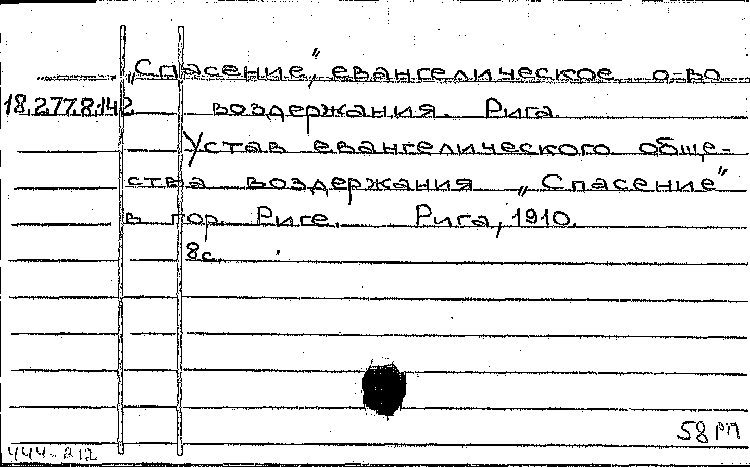 „Спасение", евангелическое о-во
18.277.8.142 воздержания. Рига.
Устав евангелического обще-
ства воздержания „Спасение"
в гор. Риге. Рига, 1910.
8с.
58 рп
444-212